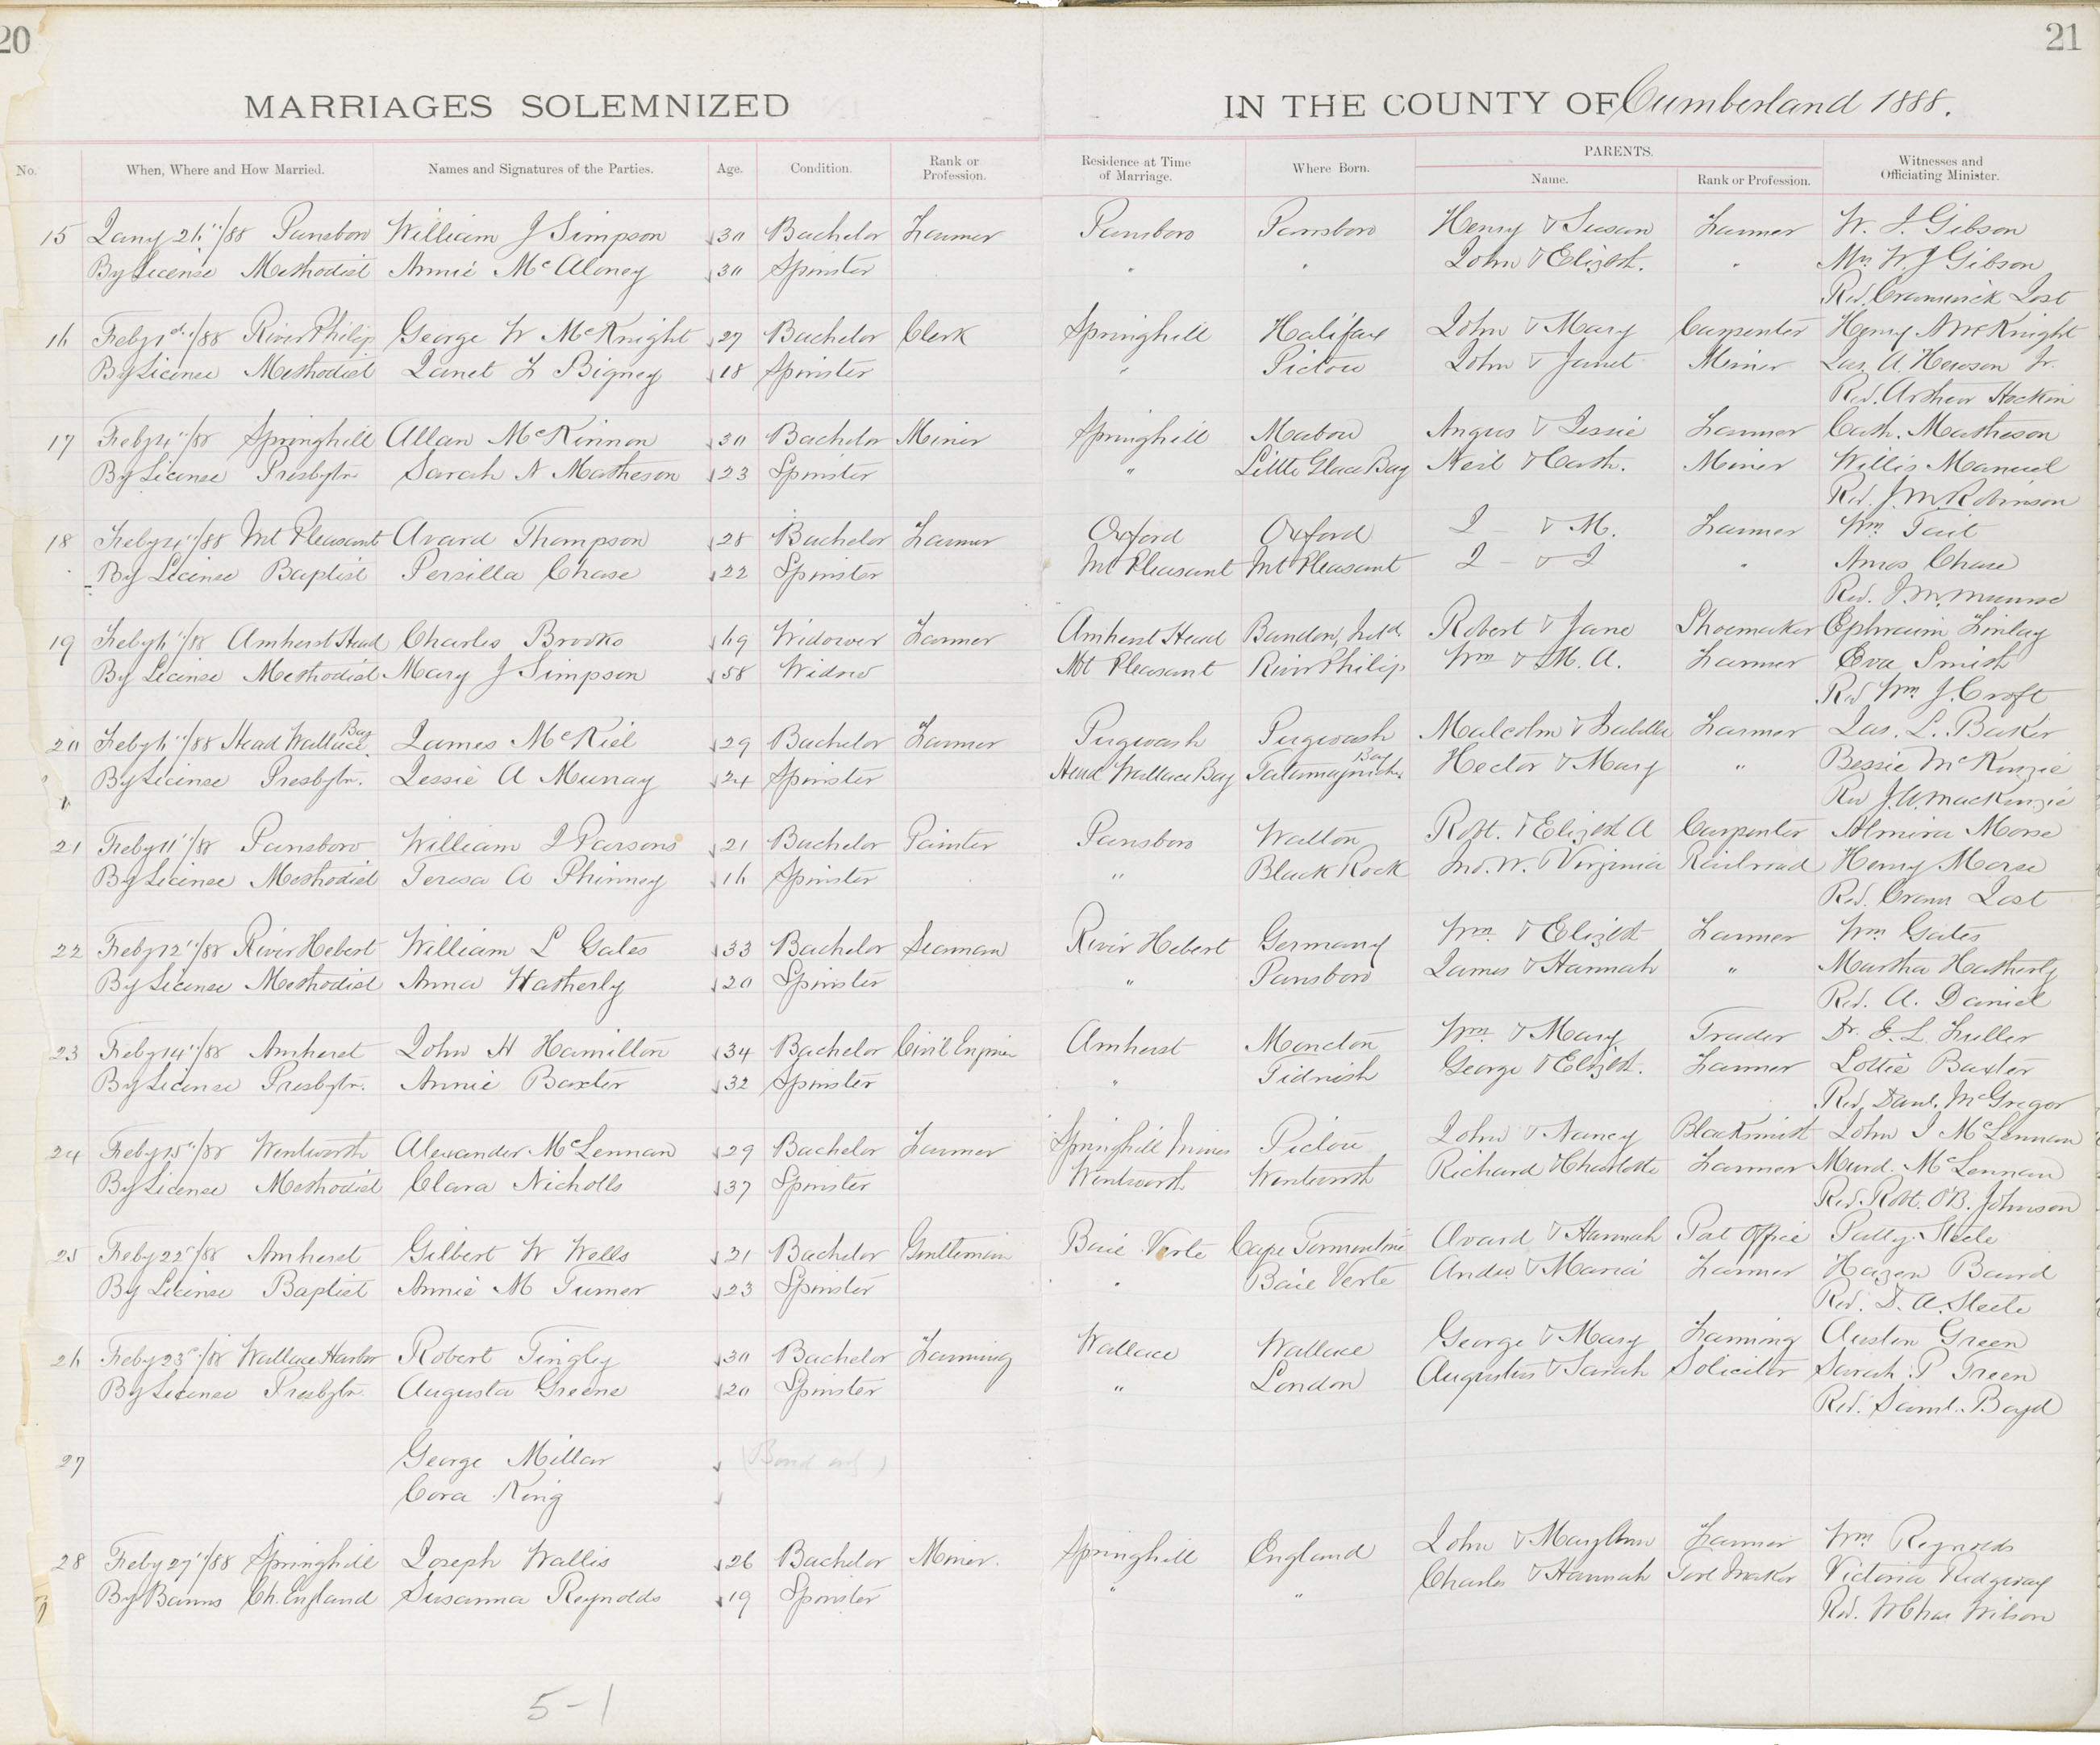 20
21
MARRIAGES SOLEMNIZED IN THE COUNTY OF Cumberland 1888.
No. When, Where and How Married. Names and Signatures of the Parties. Age. Condition. Rank or Profession. Residence at Time of Marriage. Where Born. PARENTS. Name. Rank or Profession. Witnesses and Officiating Minister.
15 Jany 26"/88 Parrsboro William J Simpson 30 Bachelor Farmer Parrsboro Parrsboro Henry & Susan Farmer W. J. Gibson
By License Methodist Annie McAloney 30 Spinster " " John & Elizbt. " Mrs W. J Gibson
Rev. Cranswick Jost
16 Feby 1st/88 River Philip George W McKnight 27 Bachelor Clerk Springhill Halifax John & Mary Carpenter Henry N McKnight
By License Methodist Janet L Bigney 18 Spinster " Pictou John & Janet Miner Jas. A. Hewson Jr.
Rev. Arthur Hockin
17 Feby 4"/88 Springhill Allan McKinnon 30 Bachelor Miner Springhill Mabou Angus & Jessie Farmer Cath. Matheson
By License Presbytn Sarah N Matheson 23 Spinster " Little Glace Bay Neil & Cath. Miner Willis Manuel
Rev. J. M. Robinson
18 Feby 4"/88 Mt Pleasant Avard Thompson 28 Bachelor Farmer Oxford Oxford J — & M. Farmer Wm Tait
By License Baptist Persilla Chase 22 Spinster Mt Pleasant Mt Pleasant J — & J " Amos Chase
Rev. J. M. Munroe
19 Feby 6"/88 Amherst Head Charles Brooks 69 Widower Farmer Amherst Head Bandon, Irld Robert & Jane Shoemaker Ephraim Finlay
By License Methodist Mary J Simpson 58 Widow Mt Pleasant River Philip Wm & M. A. Farmer Eva Smith
Rev Wm J. Croft
20 Feby 6"/88 Head Wallace Bay James McKiel 29 Bachelor Farmer Pugwash Pugwash Malcolm & Isabella Farmer Jas. L. Baker
By License Presbytn. Jessie A Murray 24 Spinster Head Wallace Bay Tatamagouche Bay Hector & Mary " Bessie McKenzie
Rev J. A. MacKenzie
21 Feby 11"/88 Parrsboro William J Parsons 21 Bachelor Painter Parrsboro Walton Robt. & Elizbt A Carpenter Almira Morse
By License Methodist Teresa A Phinney 16 Spinster " Black Rock Jno. W. & Virginia Railroad Henry Morse
Rev. Cran Jost
22 Feby 12"/88 River Hebert William L Gates 33 Bachelor Seaman River Hebert Germany Wm & Elizbt Farmer Wm Gates
By License Methodist Anna Hatherly 20 Spinster " Parrsboro James & Hannah " Martha Hatherly
Rev. A. Daniel
23 Feby 14"/88 Amherst John H Hamilton 34 Bachelor Civil Enginer Amherst Moncton Wm & Mary Trader Dr. E. L. Fuller
By License Presbytn. Annie Baxter 32 Spinster " Tidnish George & Elizbt. Farmer Lottie Baxter
Rev. Danl. McGregor
24 Feby 15"/88 Wentworth Alexander McLennan 29 Bachelor Farmer Springhill Mines Pictou John & Nancy Blacksmith John J McLennan
By License Methodist Clara Nicholls 37 Spinster Wentworth Wentworth Richard & Charlotte Farmer Murd. McLennan
Rev. Robt. O'B. Johnson
25 Feby 22"/88 Amherst Gilbert W Wells 21 Bachelor Gentleman Baie Verte Cape Tormentine Avard & Hannah Post Office Patty Steele
By License Baptist Annie M Turner 23 Spinster " Baie Verte Andw & Maria Farmer Hazen Baird
Rev. D. A. Steele
26 Feby 23"/88 Wallace Harbor Robert Tingley 30 Bachelor Farming Wallace Wallace George & Mary Farming Austin Green
By License Presbytn Augusta Greene 20 Spinster " London Augustus & Sarah Solicitor Sarah P Green
Rev. Saml. Boyd
27 George Millar (Bond only)
Cora King
28 Feby 27"/88 Springhill Joseph Wallis 26 Bachelor Miner. Springhill England John & Mary Ann Farmer Wm Reynolds
By Banns Ch. England Susanna Reynolds 19 Spinster " " Charles & Hannah Tool Maker Victoria Ridgway
Rev. W Chas Wilson
5-1